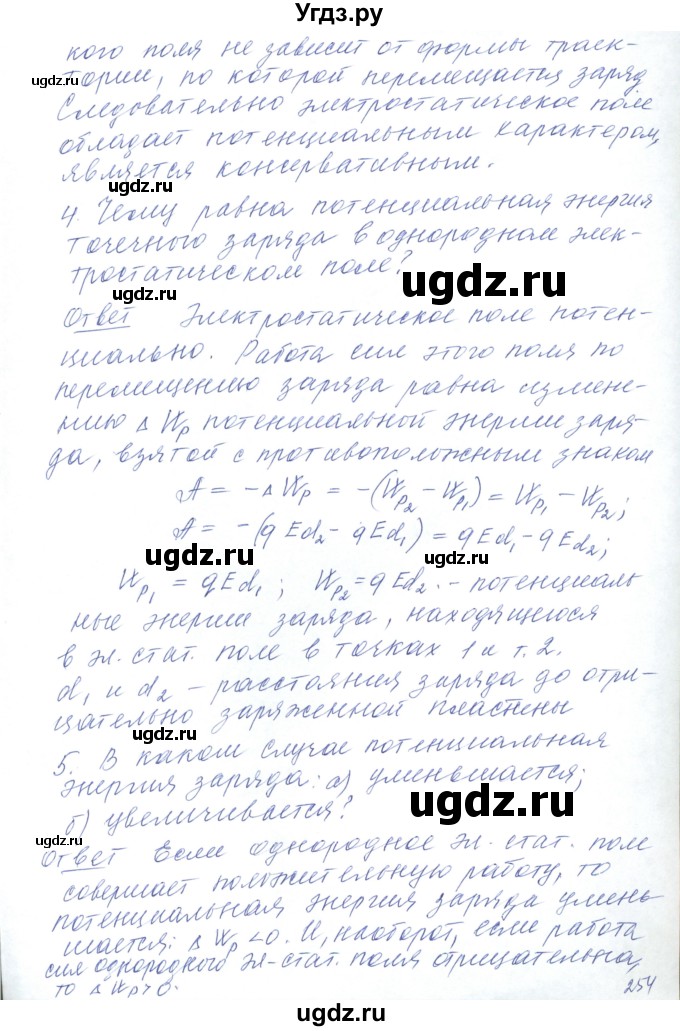 Угдз.ру
кого поля не зависит от формы траек-
тории, по которой перемещается заряд
Следовательно электростатическое поле
обладает потенциальным характером,
является консервативным.
ugdz.ru
ugdz.ru
4. Чему равна потенциальная энергия
точечного заряда в однородном элек-
тростатическом поле?
ugdz.ru
ugdz.ru
Ответ Электростатическое поле потен-
циально. Работа сил этого поля по
перемещению заряда равна измене-
нию ΔWp потенциальной энергии заря-
да, взятой с противоположным знаком
A = -ΔWp = -(Wp₂ - Wp₁) = Wp₁ - Wp₂;
A = -(qEd₂ - qEd₁) = qEd₁ - qEd₂;
ugdz.ru
ugdz.ru
Wp₁ = qEd₁; Wp₂ = qEd₂. - потенциаль
ные энергии заряда, находящегося
в эл. стат. поле в точках 1 и т. 2.
d₁ и d₂ - расстояния заряда до отри-
цательно заряженной пластены
ugdz.ru
5. В каком случае потенциальная
энергия заряда: а) уменьшается;
б) увеличивается?
ugdz.ru
ugdz.ru
Ответ Если однородное эл-стат. поле
совершает положительную работу, то
потенциальная энергия заряда умень
шается: ΔWp < 0. И, наоборот, если работа
сил однородного эл-стат. поля отрицательна,
то ΔWp > 0.
ugdz.ru
254